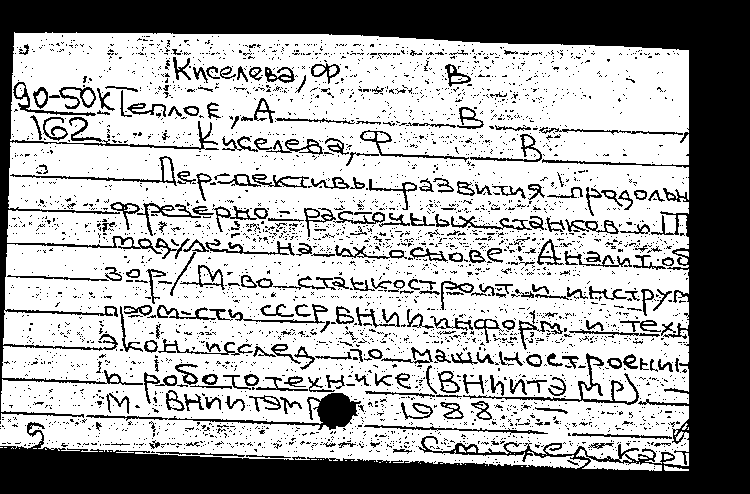 Киселева, Ф. В
90-50к Теплов, А В
162 Киселева, Ф В
Перспективы развития продольн
фрезерно-расточных станков и П
модулей на их основе: Аналит. об
зор/М-во станкостроит. и инструм
пром-сти СССР, ВНИИ информ. и техн
экон. исслед. по машиностроению
и робототехнике (ВНИИТЭМР). —
М.: ВНИИТЭМР 1988 —
9 См. след. карт